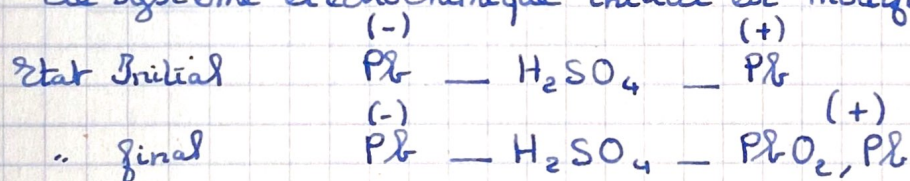 (-) (+)
Etat Initial Pb — H₂SO₄ — Pb
(-) (+)
" final Pb — H₂SO₄ — PbO₂, Pb